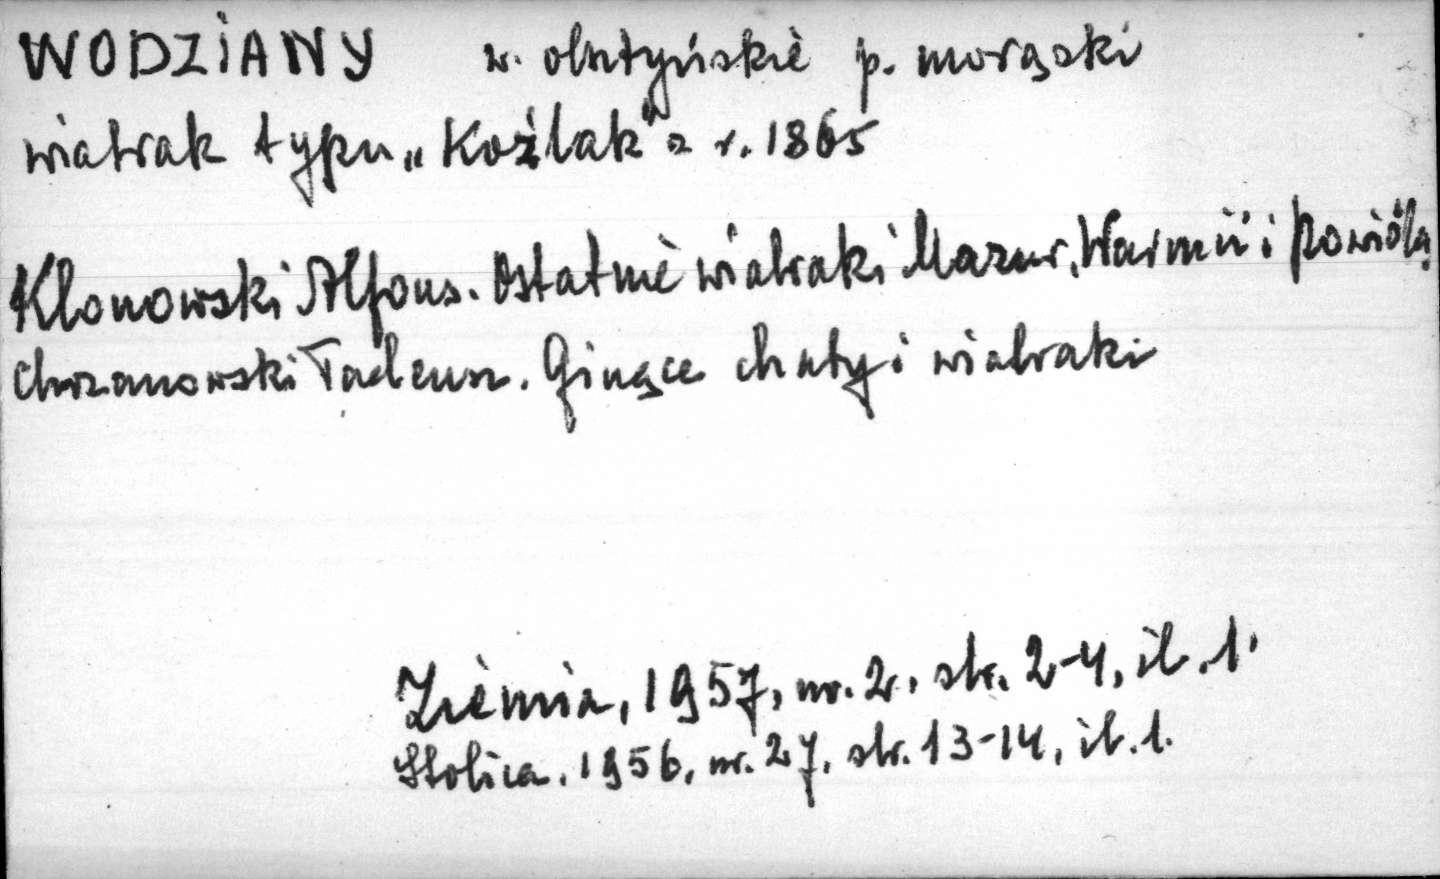 WODZIANY w. olsztyńskie p. morąski
wiatrak typu „Koźlak" z r. 1865
Klonowski Alfons. Ostatnie wiatraki Mazur, Warmii i Powiśla
Chrzanowski Tadeusz. Ginące chaty i wiatraki
Ziemia, 1957, nr. 2, str. 2-4, il. 1.
Stolica. 1956, nr. 27, str. 13-14, il. 1.